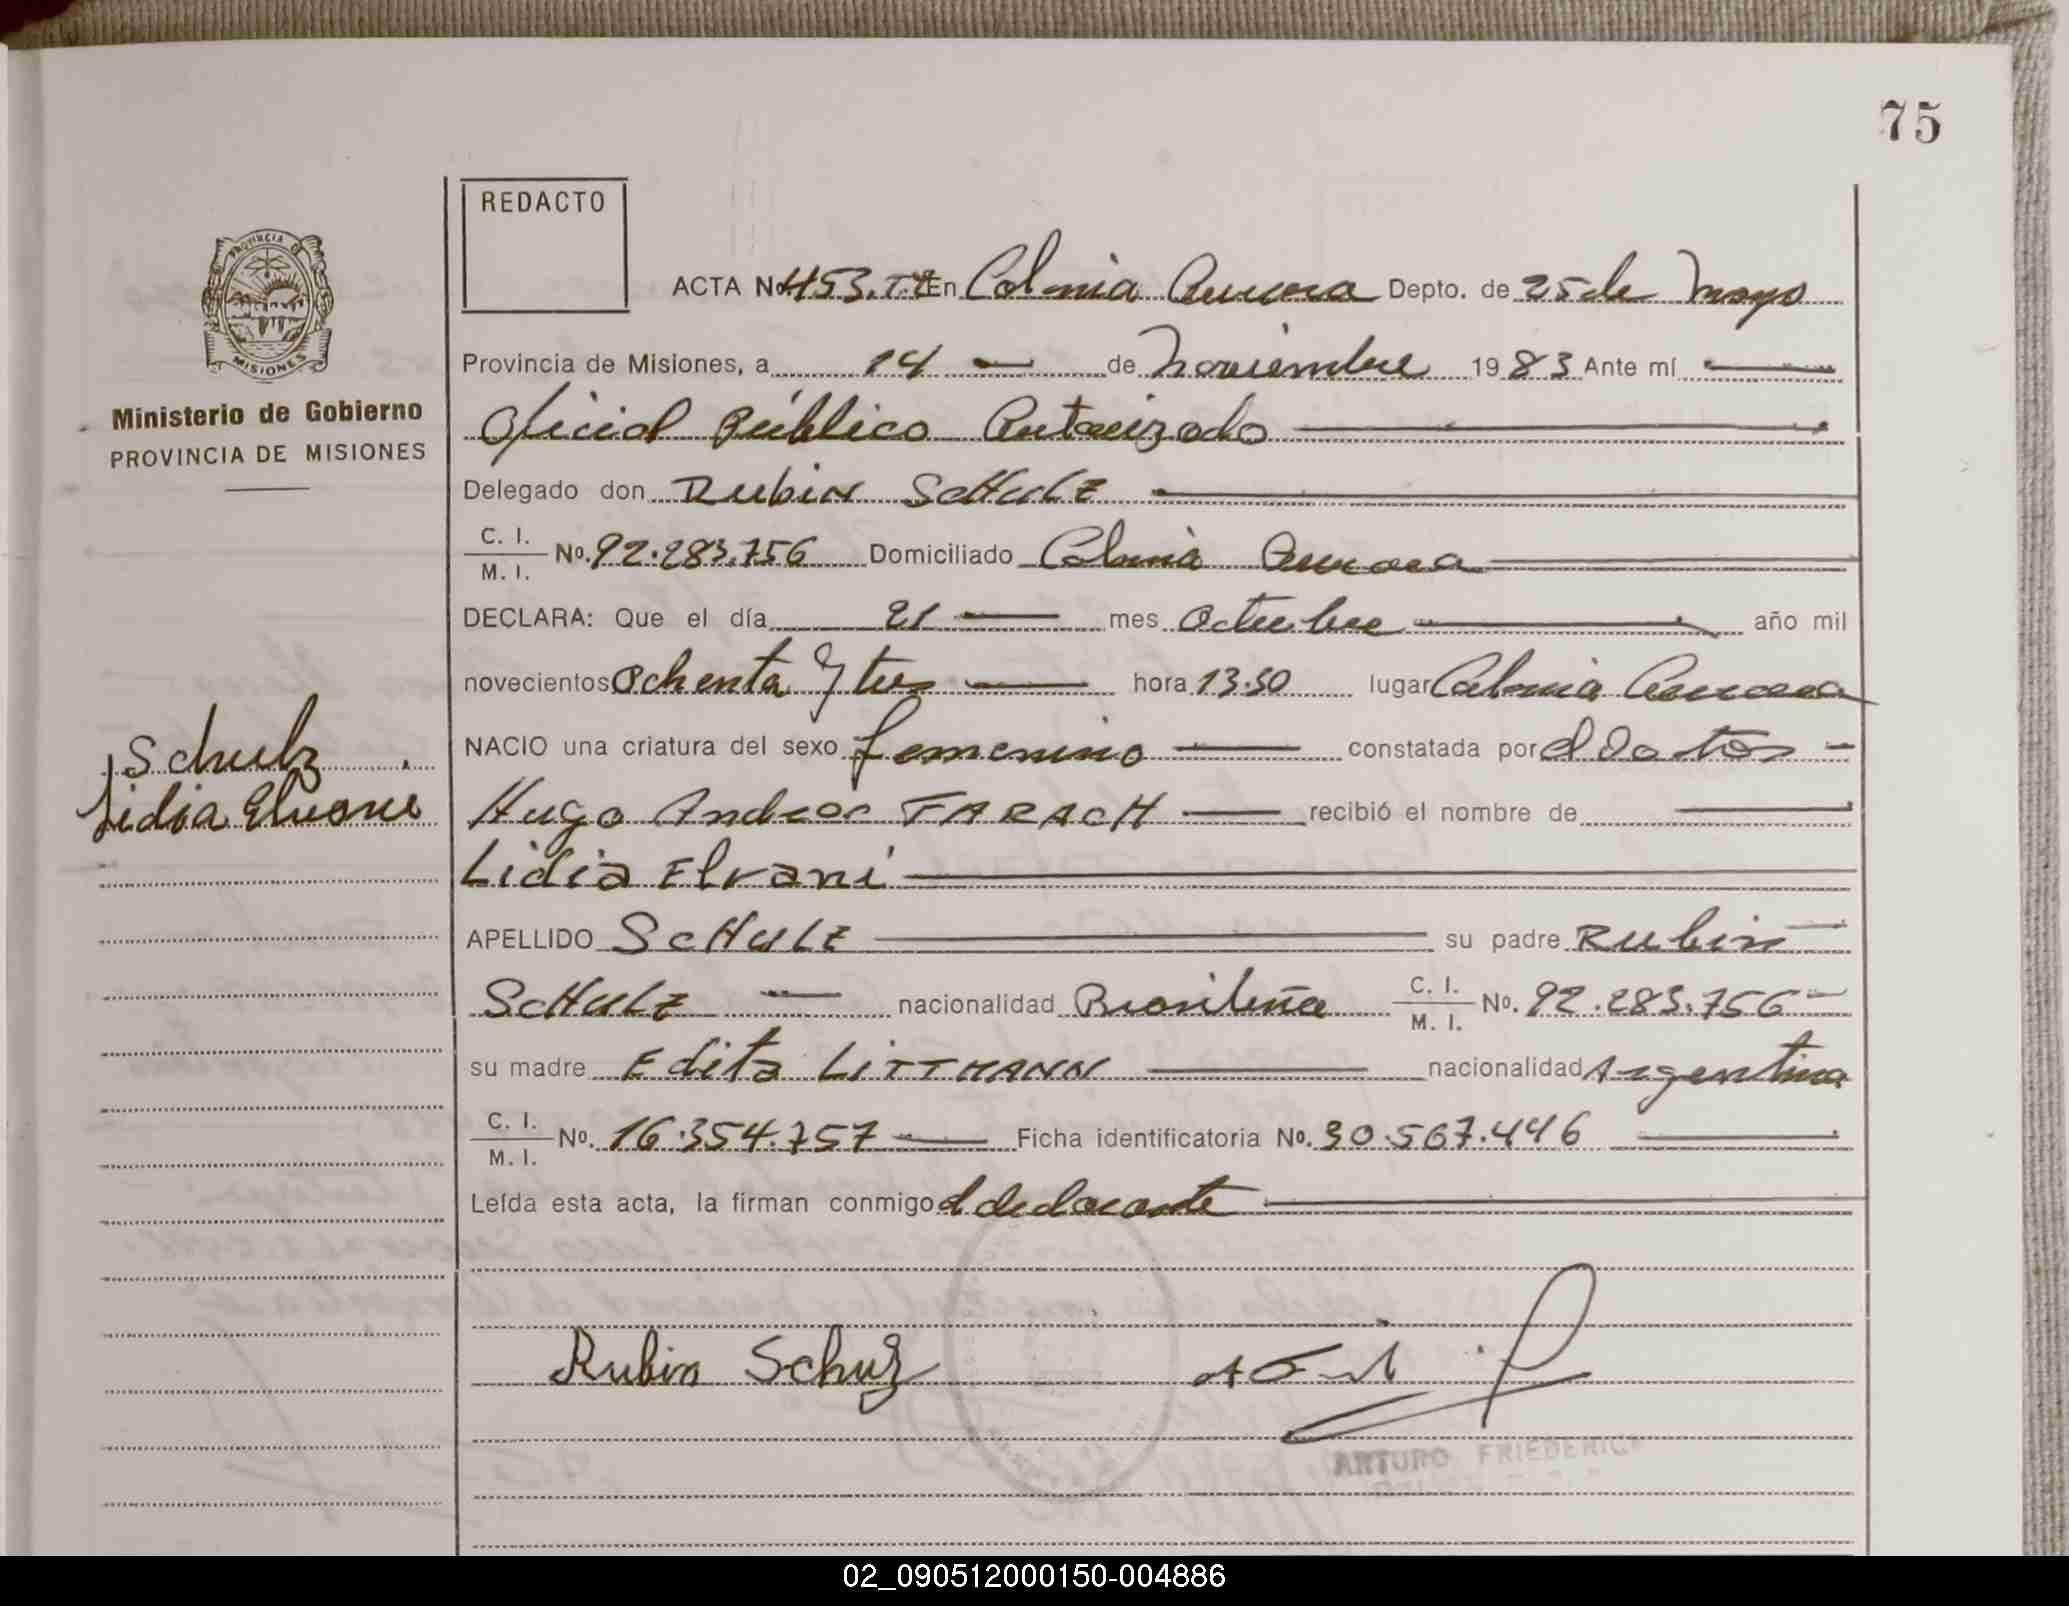 75
REDACTO
PROVINCIA DE
MISIONES
ACTA No. 453. En Colonia Aurora Depto. de 25 de Mayo
Provincia de Misiones, a 14 — de Noviembre 1983 Ante mí —
Oficial Público Autorizado —
Ministerio de Gobierno
PROVINCIA DE MISIONES
Delegado don Rubin SCHULZ —
C. I.
M. I. No. 92.283.756 Domiciliado Colonia Aurora —
DECLARA: Que el día 21 — mes Octubre — año mil
novecientos Ochenta y tres — hora 13.50 lugar Colonia Aurora
NACIO una criatura del sexo femenino — constatada por el Doctor —
Schulz
Lidia Elvani
Hugo Andres FARACH — recibió el nombre de —
Lidia Elvani —
APELLIDO SCHULZ — su padre Rubin —
SCHULZ — nacionalidad Brasileña C. I.
M. I. No. 92.283.756 —
su madre Edita LITTMANN — nacionalidad Argentina
C. I.
M. I. No. 16.354.757 — Ficha identificatoria No. 30.567.446 —
Leída esta acta, la firman conmigo el declarante —
Rubin Schulz
ARTURO FRIEDERICH
02_090512000150-004886